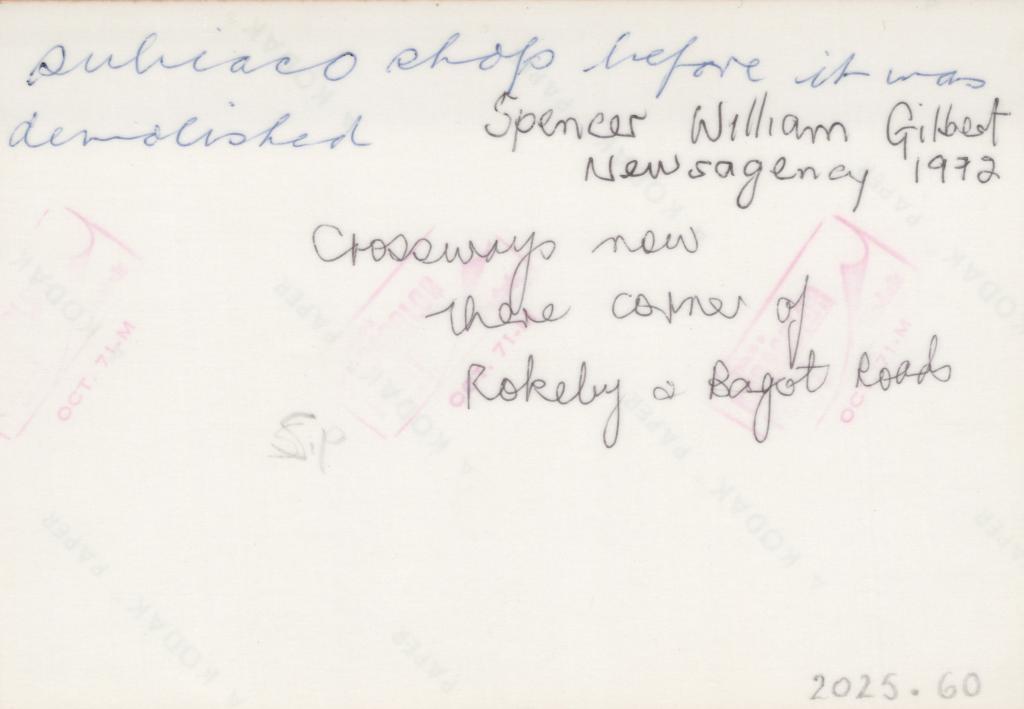 subiaco shop before it was
demolished
Spencer William Gilbert
Newsagency 1972
Crossways now
there corner of
Rokeby & Bagot Roads
OCT. 71-M
OCT. 71-M
OCT. 71-M
A KODAK PAPER
A KODAK PAPER
A KODAK PAPER
2025.60